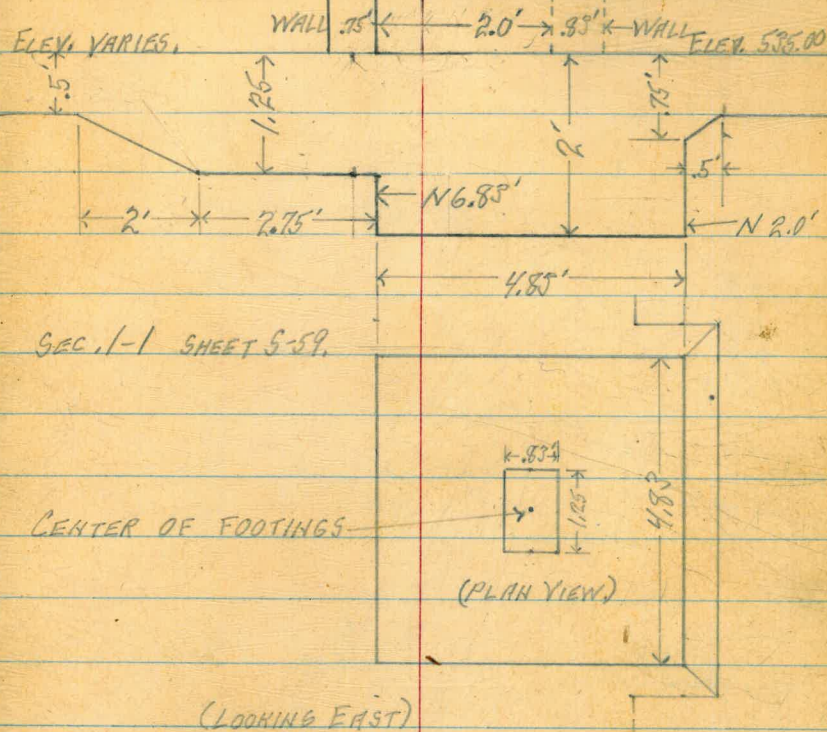 WALL .75' 2.0' .83' WALL
ELEV. VARIES. ELEV. 535.00
.5' 1.25 2' .75'
.5'
N 6.83'
2' 2.75' N 2.0'
4.83'
SEC. 1-1 SHEET S-59.
.83'
1.25 4.83
CENTER OF FOOTINGS
(PLAN VIEW.)
(LOOKING EAST)